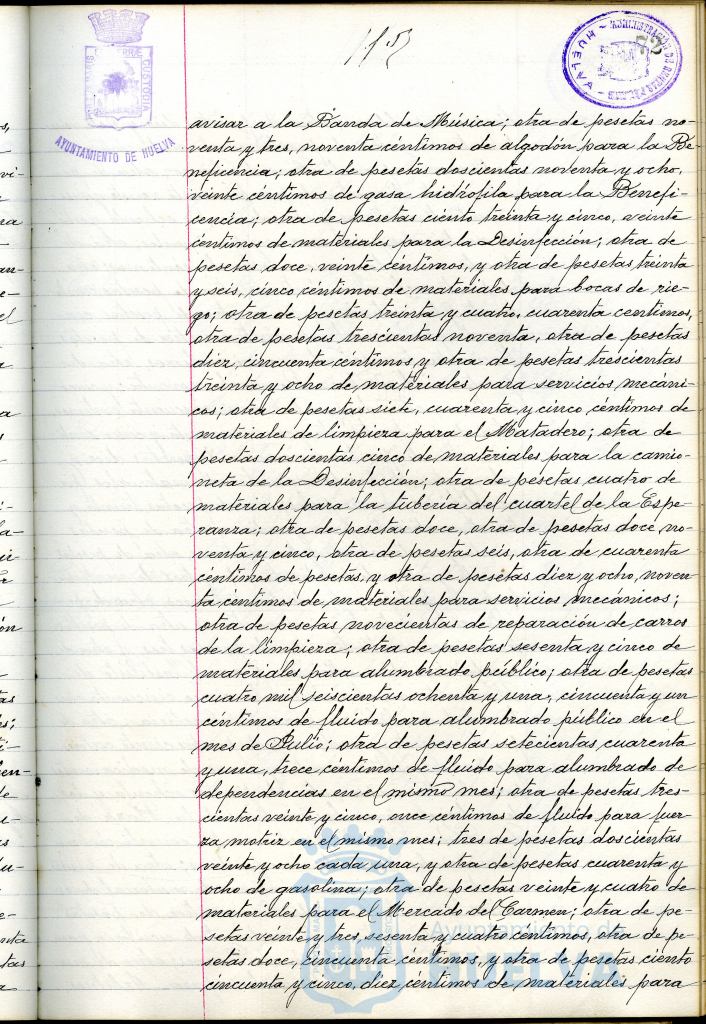 115
82
AYUNTAMIENTO DE HUELVA
avisar a la Banda de Música; otra de pesetas no-
venta y tres, noventa céntimos de algodón para la Be-
neficencia; otra de pesetas doscientas noventa y ocho,
veinte céntimos de gasa hidrófila para la Benefi-
cencia; otra de pesetas ciento treinta y cinco, veinte
céntimos de materiales para la Desinfección; otra de
pesetas doce, veinte céntimos, y otra de pesetas treinta
y seis, cinco céntimos de materiales para bocas de rie-
go; otra de pesetas treinta y cuatro, cuarenta centimos,
otra de pesetas trescientas noventa, otra de pesetas
diez, cincuenta céntimos y otra de pesetas trescientas
treinta y ocho de materiales para servicios mecáni-
cos; otra de pesetas siete, cuarenta y cinco céntimos de
materiales de limpieza para el Matadero; otra de
pesetas doscientas cinco de materiales para la camio-
neta de la Desinfección; otra de pesetas cuatro de
materiales para la tubería del cuartel de la Espe-
ranza; otra de pesetas doce, otra de pesetas doce no-
venta y cinco, otra de pesetas seis, otra de cuarenta
céntimos de pesetas, y otra de pesetas diez y ocho, noven
ta céntimos de materiales para servicios mecánicos;
otra de pesetas novecientas de reparación de carros
de la limpieza; otra de pesetas sesenta y cinco de
materiales para alumbrado público; otra de pesetas
cuatro mil seiscientas ochenta y una, cincuenta y un
céntimos de fluido para alumbrado público en el
mes de Julio; otra de pesetas setecientas cuarenta
y una, trece céntimos de fluido para alumbrado de
dependencias en el mismo mes; otra de pesetas tres-
cientas veinte y cinco, once céntimos de fluido para fuer-
za motriz en el mismo mes; tres de pesetas doscientas
veinte y ocho cada una, y otra de pesetas cuarenta y
ocho de gasolina; otra de pesetas veinte y cuatro de
materiales para el Mercado del Carmen; otra de pe-
setas veinte y tres, sesenta y cuatro céntimos, otra de pe-
setas doce, cincuenta céntimos, y otra de pesetas ciento
cincuenta y cinco, diez céntimos de materiales para
Ayuntamiento de
HUELVA